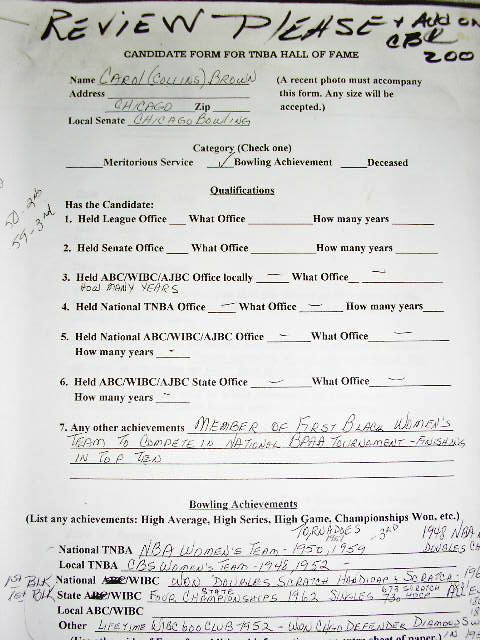 REVIEW PLEASE + ADD ON
CBK
200
CANDIDATE FORM FOR TNBA HALL OF FAME
Name CAROL (COLLINS) BROWN (A recent photo must accompany
Address this form. Any size will be
CHICAGO Zip accepted.)
Local Senate CHICAGO BOWLING
Category (Check one)
Meritorious Service ✓ Bowling Achievement Deceased
Qualifications
50-2nd
59-3rd
Has the Candidate:
1. Held League Office What Office How many years
2. Held Senate Office What Office How many years
3. Held ABC/WIBC/AJBC Office locally – What Office –
HOW MANY YEARS
4. Held National TNBA Office – What Office – How many years
5. Held National ABC/WIBC/AJBC Office – What Office –
How many years –
6. Held ABC/WIBC/AJBC State Office – What Office –
How many years –
7. Any other achievements MEMBER OF FIRST BLACK WOMEN'S
TEAM TO COMPETE IN NATIONAL BPAA TOURNAMENT - FINISHING
IN TOP TEN
Bowling Achievements
(List any achievements: High Average, High Series, High Game, Championships Won, etc.)
TORNADOES 3RD 1948 NBA
National TNBA NBA WOMEN'S TEAM - 1950, 1959 DOUBLES
Local TNBA CBS WOMEN'S TEAM - 1948, 1952 -
1ST BLK National ABC/WIBC WON DOUBLES SCRATCH HANDICAP & SCRATCH -
1ST BLK State ABC/WIBC FOUR STATE CHAMPIONSHIPS 1962 SINGLES 673 SCRATCH 730 HDCP
Local ABC/WIBC
Other LIFETIME WIBC 600 CLUB - 1952 - WON CHGO DEFENDER DIAMOND